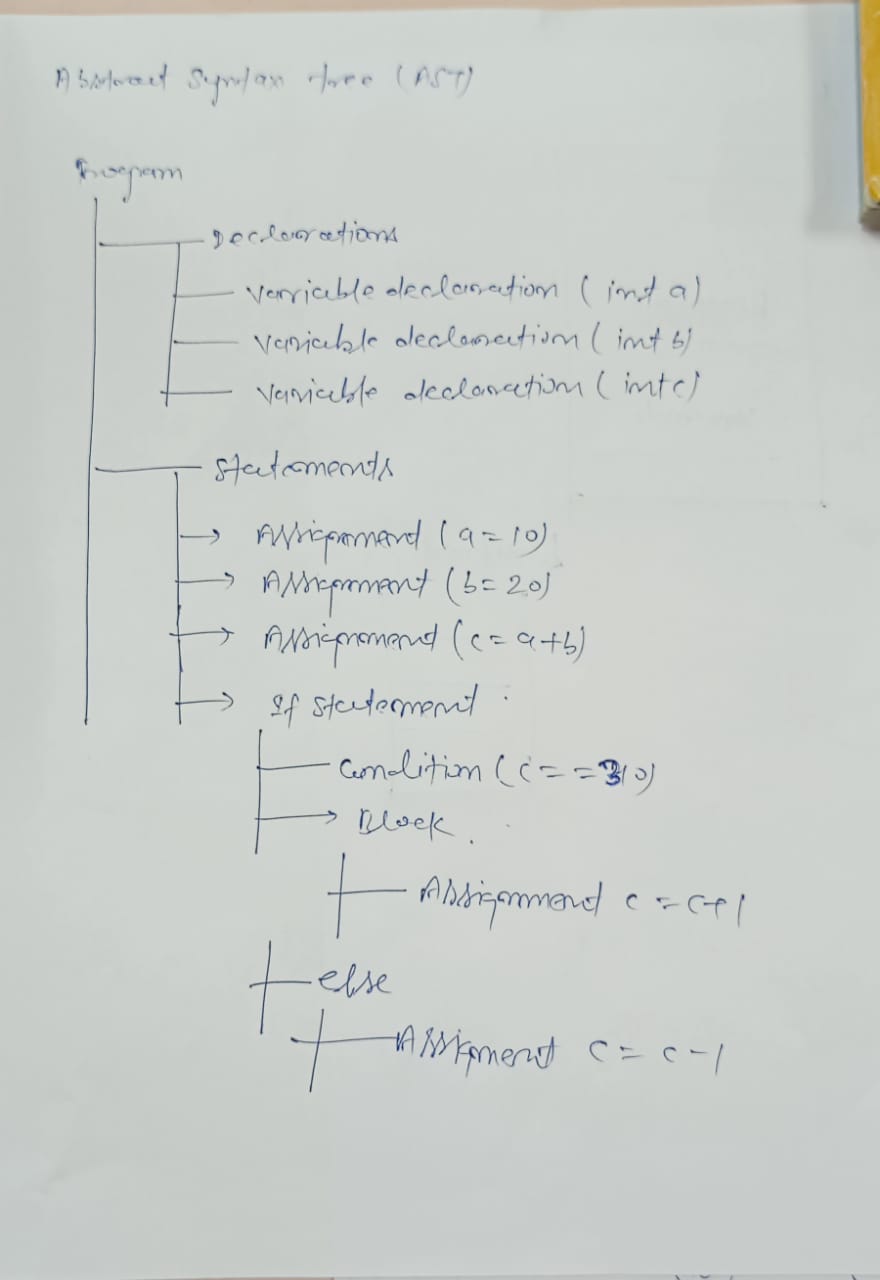 Abstract Syntax tree (AST)
Program
Declarations
Variable declaration (int a)
Variable declaration (int b)
Variable declaration (int c)
Statements
Assignment (a = 10)
Assignment (b = 20)
Assignment (c = a+b)
If statement
Condition (c ==
Block
Assignment c = c+1
else
Assignment c = c-1